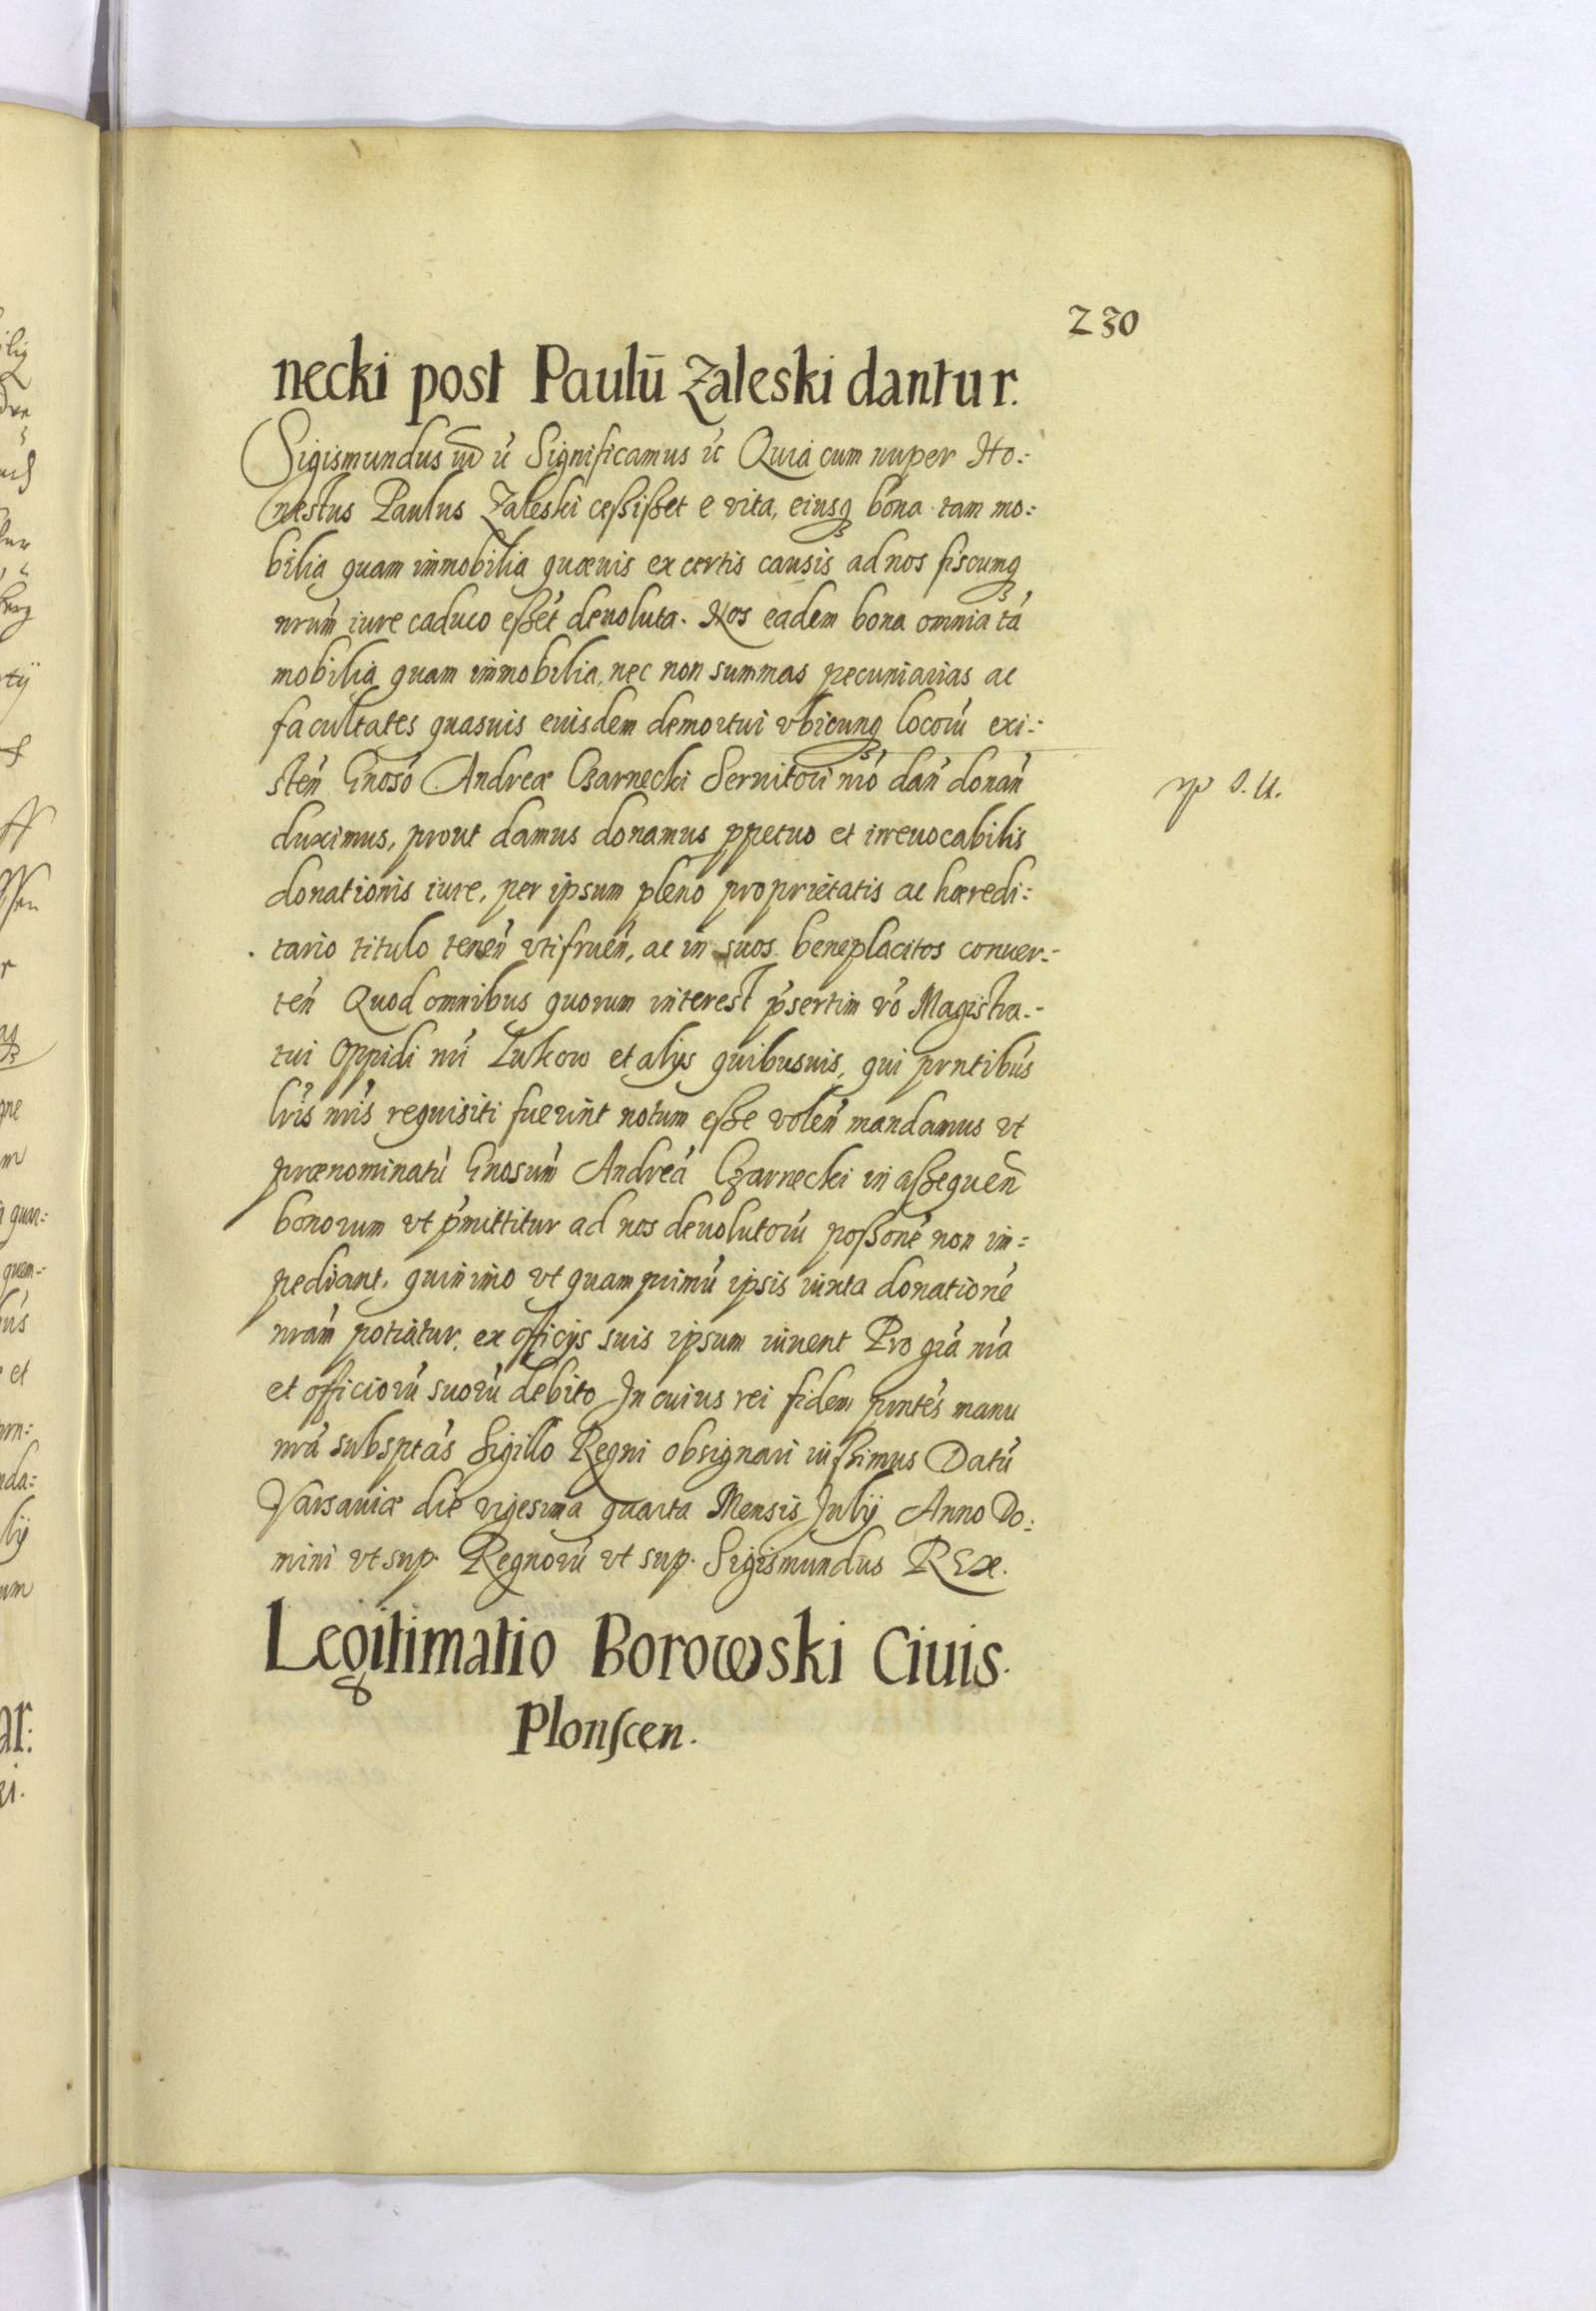 230
necki post Paulū Zaleski dantur.
Sigismundus III ec Significamus ec Quia cum nuper Ho:
nestus Paulus Zaleski cessisset e vita, eiusq bona tam mo:
bilia quam immobilia quæuis ex certis causis ad nos fiscumq
nrum iure caduco essēt deuoluta. Nos eadem bona omnia tā
mobilia quam immobilia, nec non summas pecuniarias ac
facultates quasuis euisdem demortui vbicunq locorū exi:
sten Gnoso Andreæ Czarnecki Seruitori nro dan donan
duximus, prout damus donamus ppetuo et irreuocabilis
donationis iure, per ipsum pleno proprietatis ac hæredi:
tario titulo tenen vtifruen, ac in suos beneplacitos conuer:
ten Quod omnibus quorum interest psertim vo Magistra:
tui Oppidi nri Lukow et alijs quibusuis, qui prntibus
lris nris requisiti fuerint notum esse volen mandamus vt
prænominatū Gnosum Andreā Czarnecki in assequen
bonorum vt pmittitur ad nos deuolutorū possonē non im:
pediant, quinimo vt quam primū ipsis iuxta donationē
nram potiatur, ex officijs suis ipsum iuuent Pro gra nra
et officiorū suorū debito In cuius rei fidem prntes manu
nra subsptas Sigillo Regni obsignari iussimus Datū
Varsauiæ die vigesima quarta Mensis Julij Anno Do:
mini vt sup. Regnorū vt sup. Sigismundus REx.
Legitimatio Borowski Ciuis
Plonscen.